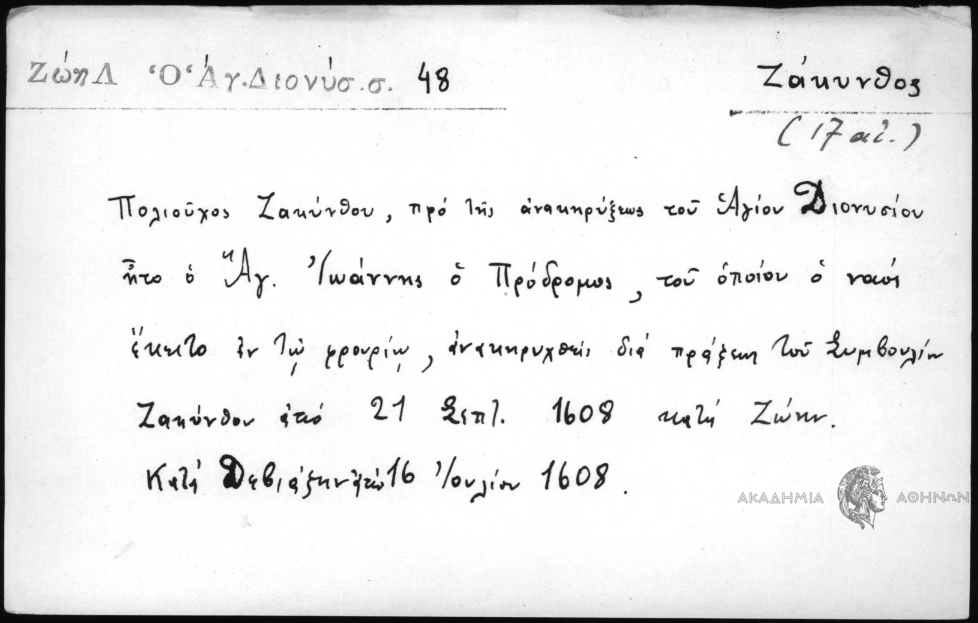 Ζώη Λ Ὁ Ἅγ.Διονύσ.σ. 48
Ζάκυνθος
(17 αἰ.)
Πολιοῦχος Ζακύνθου, πρό τῆς ἀνακηρύξεως τοῦ Ἁγίου Διονυσίου
ἦτο ὁ Ἅγ. Ἰωάννης ὁ Πρόδρομος, τοῦ ὁποίου ὁ ναός
ἔκειτο ἐν τῷ φρουρίῳ, ἀνακηρυχθείς διά πράξεως τοῦ Συμβουλίου
Ζακύνθου ἀπό 21 Σεπτ. 1608 κατά Ζώην.
Κατά Δεβιάζην ἀπό 16 Ἰουλίου 1608.
ΑΚΑΔΗΜΙΑ ΑΘΗΝΩΝ